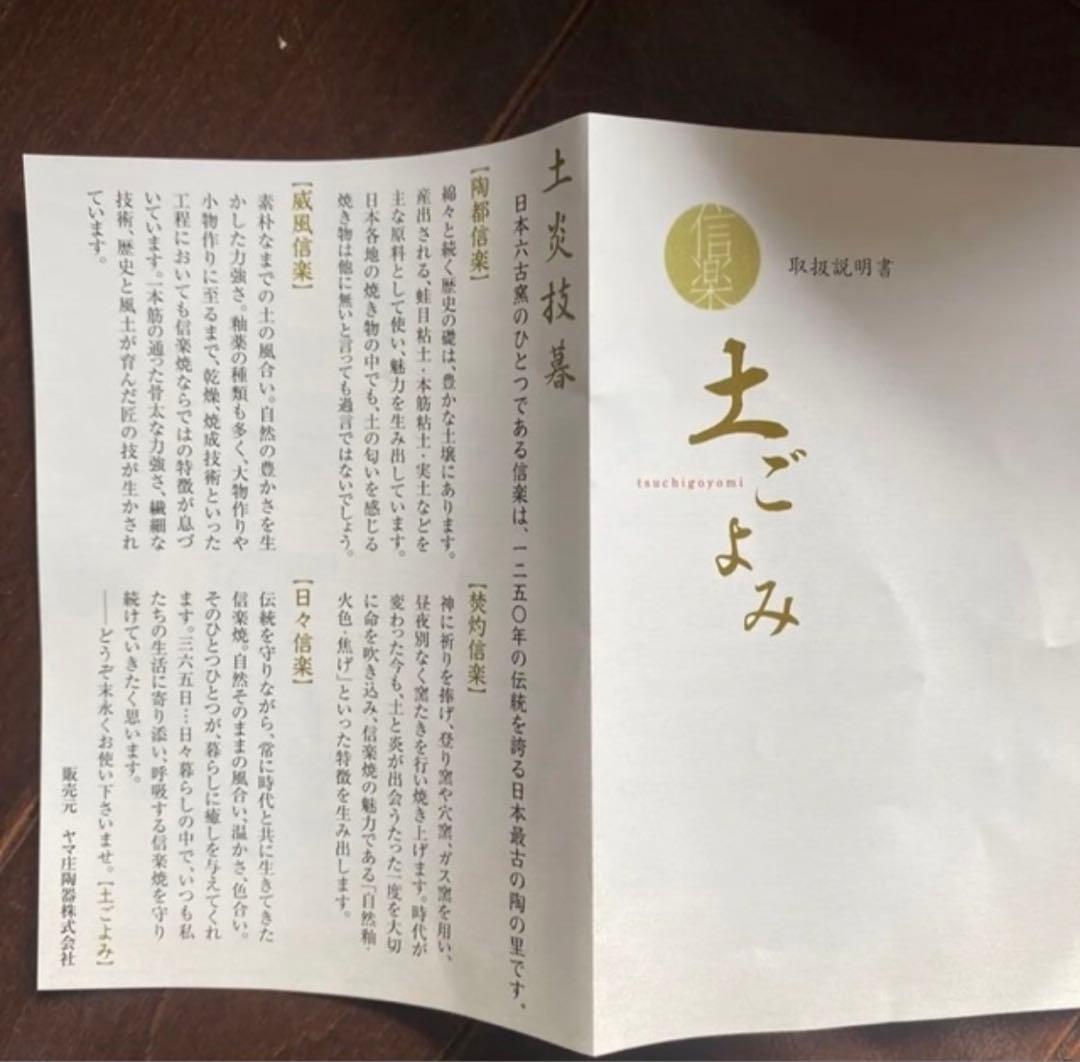 信楽
取扱説明書
土ごよみ
tsuchigoyomi
土炎技暮
日本六古窯のひとつである信楽は、一二五〇年の伝統を誇る日本最古の陶の里です。
【陶都信楽】
綿々と続く歴史の礎は、豊かな土壌にあります。
産出される、蛙目粘土・本筋粘土・実土などを
主な原料として使い、魅力を生み出しています。
日本各地の焼き物の中でも、土の匂いを感じる
焼き物は他に無いと言っても過言ではないでしょう。
【威風信楽】
素朴なまでの土の風合い。自然の豊かさを生
かした力強さ。釉薬の種類も多く、大物作りや
小物作りに至るまで、乾燥、焼成技術といった
工程においても信楽焼ならではの特徴が息づ
いています。一本筋の通った骨太な力強さ、繊細な
技術、歴史と風土が育んだ匠の技が生かされ
ています。
【焚灼信楽】
神に祈りを捧げ、登り窯や穴窯、ガス窯を用い、
昼夜別なく窯たきを行い焼き上げます。時代が
変わった今も、土と炎が出会うたった一度を大切
に命を吹き込み、信楽焼の魅力である「自然釉・
火色・焦げ」といった特徴を生み出します。
【日々信楽】
伝統を守りながら、常に時代と共に生きてきた
信楽焼。自然そのままの風合い、温かさ、色合い。
そのひとつひとつが、暮らしに癒しを与えてくれ
ます。三六五日…日々暮らしの中で、いつも私
たちの生活に寄り添い、呼吸する信楽焼を守り
続けていきたく思います。
――どうぞ末永くお使い下さいませ。【土ごよみ】
販売元 ヤマ庄陶器株式会社